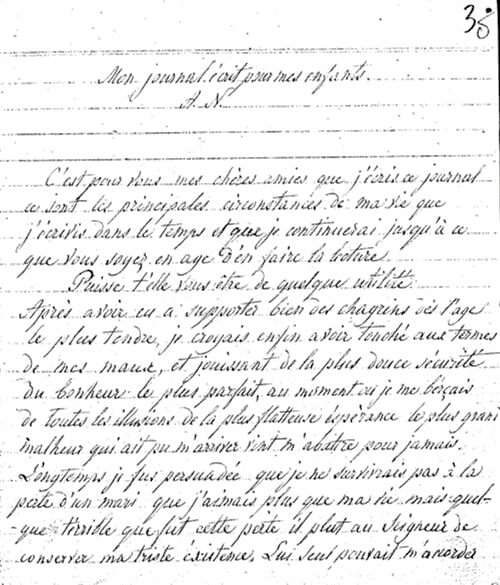 38
Mon journal écrit pour mes enfants.
A. N.
C'est pour vous mes chères amies que j'écris ce journal
ce sont les principales circonstances de ma vie que
j'écrivis dans le temps et que je continuerai jusqu'à ce
que vous soyez en age d'en faire la lecture.
Puisse t'elle vous être de quelque utilité.
Après avoir eu à supporter bien des chagrins dès l'age
le plus tendre, je croyais enfin avoir touché aux termes
de mes maux, et jouissant de la plus douce sécurité
du bonheur le plus parfait, au moment où je me berçais
de toutes les illusions de la plus flatteuse éspérance le plus grand
malheur qui ait pu m'arriver vint m'abatre pour jamais.
Longtemps je fus persuadée que je ne survivrais pas à la
perte d'un mari que j'aimais plus que ma vie mais quel-
-que terrible que fut cette perte il plut au Seigneur de
conserver ma triste éxistence. Lui seul pouvait m'accorder